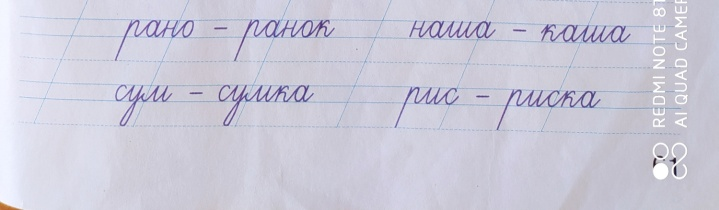 рано – ранок наша – каша
сум – сумка рис – риска
REDMI NOTE 8T
AI QUAD CAMER